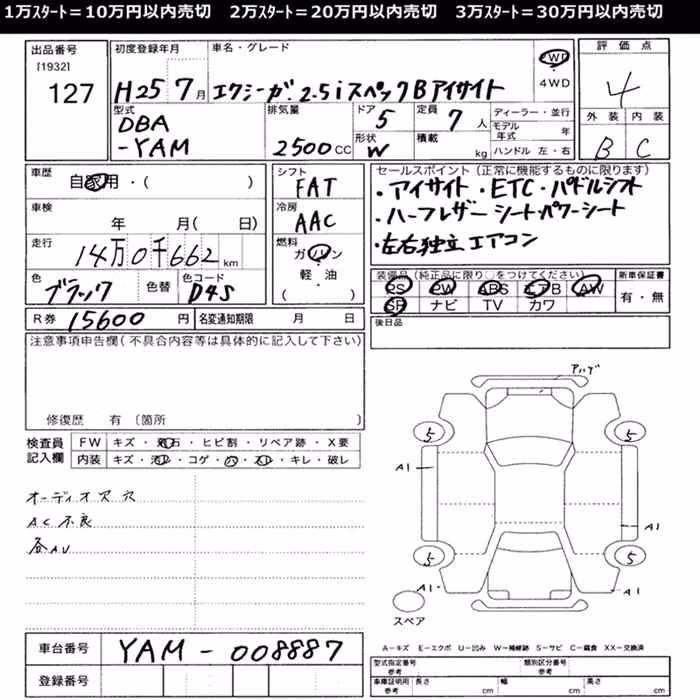 1万スタート＝10万円以内売切　2万スタート＝20万円以内売切　3万スタート＝30万円以内売切
出品番号
[1932]
127
初度登録年月
H25 7月
車名・グレード
エクシーガ 2.5i スペックB アイサイト
FWD
・
4WD
評価点
4
外装 内装
B C
型式
DBA
-YAM
排気量
2500 CC
ドア
5
形状
W
定員
7 人
積載
kg
ディーラー・並行
モデル年式 年
ハンドル 左・右
車歴
自家用・( )
車検
年 月( 日)
走行
14万0千662 km
色
ブラック
色替
色コード
D4S
R券 15600 円
名変通知期限 月 日
シフト
FAT
冷房
AAC
燃料
ガソリン
軽・油
( )
セールスポイント(正常に機能するものに限ります)
・アイサイト・ETC・パドルシフト
・ハーフレザーシートパワーシート
・左右独立エアコン
装備品(純正品に限り○をつけてください)
PS PW ABS エアB AW
SR ナビ TV カワ
新車保証書
有・無
後日品
注意事項申告欄(不具合内容等は具体的に記入して下さい)
修復歴 有 〔箇所
検査員
記入欄
FW キズ・飛石・ヒビ割・リペア跡・X要
内装 キズ・汚レ・コゲ・穴・スレ・キレ・破レ
オーディオ穴穴
AC不良
各AU
5
5
A1
A1
5
5
A1
A1
スペア
A―キズ E―エクボ U―凹み W―補修跡 S―サビ C―腐食 XX―交換済
車台番号 YAM-008887
登録番号
型式指定番号
参考
類別区分番号
参考
車庫証明用
参考
長さ cm
幅 cm
高さ cm